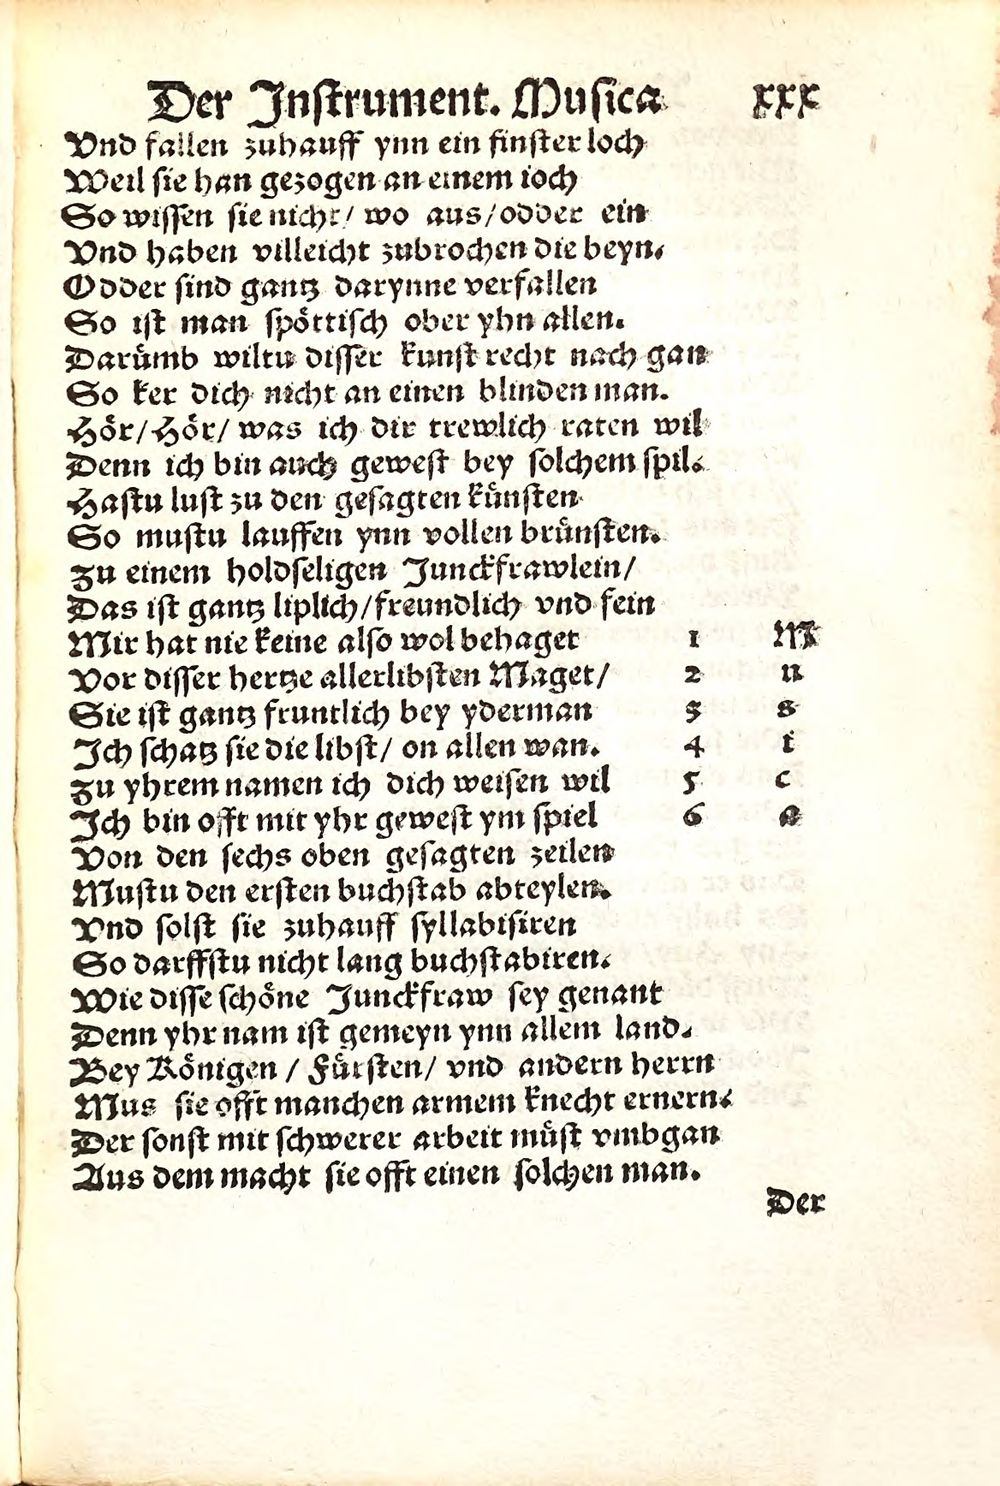 Der Inſtrument. Muſica xxx
Vnd fallen zuhauff ynn ein finſter loch
Weil ſie han gezogen an einem ioch
So wiſſen ſie nicht/ wo aus/odder ein
Vnd haben villeicht zubrochen die beyn.
Odder ſind gantz darynne verfallen
So iſt man ſpöttiſch ober yhn allen.
Darümb wiltu diſſer kunſt recht nach gan
So ker dich nicht an einen blinden man.
Hör/Hör/ was ich dir trewlich raten wil
Denn ich bin auch geweſt bey ſolchem ſpil.
Haſtu luſt zu den geſagten künſten
So muſtu lauffen ynn vollen brünſten.
Zu einem holdſeligen Junckfrawlein/
Das iſt gantz liplich/freundlich vnd fein
Mir hat nie keine alſo wol behaget 1 M
Vor diſſer hertze allerlibſten Maget/ 2 u
Sie iſt gantz fruntlich bey yderman 3 s
Ich ſchatz ſie die libſt/ on allen wan. 4 i
Zu yhrem namen ich dich weiſen wil 5 c
Ich bin offt mit yhr geweſt ym ſpiel 6 a
Von den ſechs oben geſagten zeilen
Muſtu den erſten buchſtab abteylen.
Vnd ſolſt ſie zuhauff ſyllabiſiren
So darffſtu nicht lang buchſtabiren.
Wie diſſe ſchöne Junckfraw ſey genant
Denn yhr nam iſt gemeyn ynn allem land.
Bey Königen / Fürſten/ vnd andern herrn
Mus ſie offt manchen armem knecht ernern.
Der ſonſt mit ſchwerer arbeit müſt vmbgan
Aus dem macht ſie offt einen ſolchen man.
Der